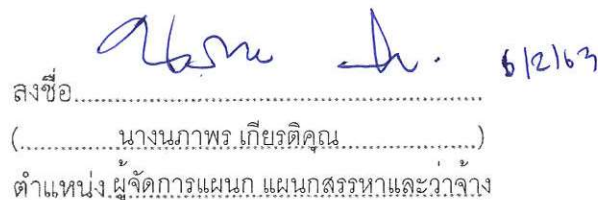 6/2/63
ลงชื่อ........................................................................
(.....................นางนภาพร เกียรติคุณ.............................)
ตำแหน่ง ผู้จัดการแผนก แผนกสรรหาและว่าจ้าง